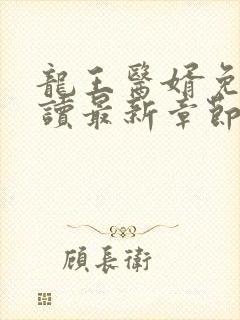 龍王醫婿免
讀最新章節
顧長衛